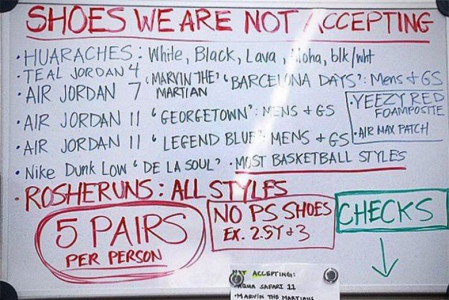 SHOES WE ARE NOT ACCEPTING
• HUARACHES: White, Black, Lava, Aloha, blk/wht
• TEAL JORDAN 4
• AIR JORDAN 7 "MARVIN THE MARTIAN" "BARCELONA DAYS": Mens + GS
• AIR JORDAN 11 "GEORGETOWN": MENS + GS
• AIR JORDAN 11 "LEGEND BLUE": MENS + GS
• YEEZY RED FOAMPOSITE
• AIR MAX PATCH
• Nike Dunk Low "DE LA SOUL" • MOST BASKETBALL STYLES
• ROSHERUNS: ALL STYLES
5 PAIRS
PER PERSON
NO PS SHOES
EX. 2.5Y + 3
CHECKS
NOT ACCEPTING:
SAFARI 11
• MARVIN THE MARTIANS